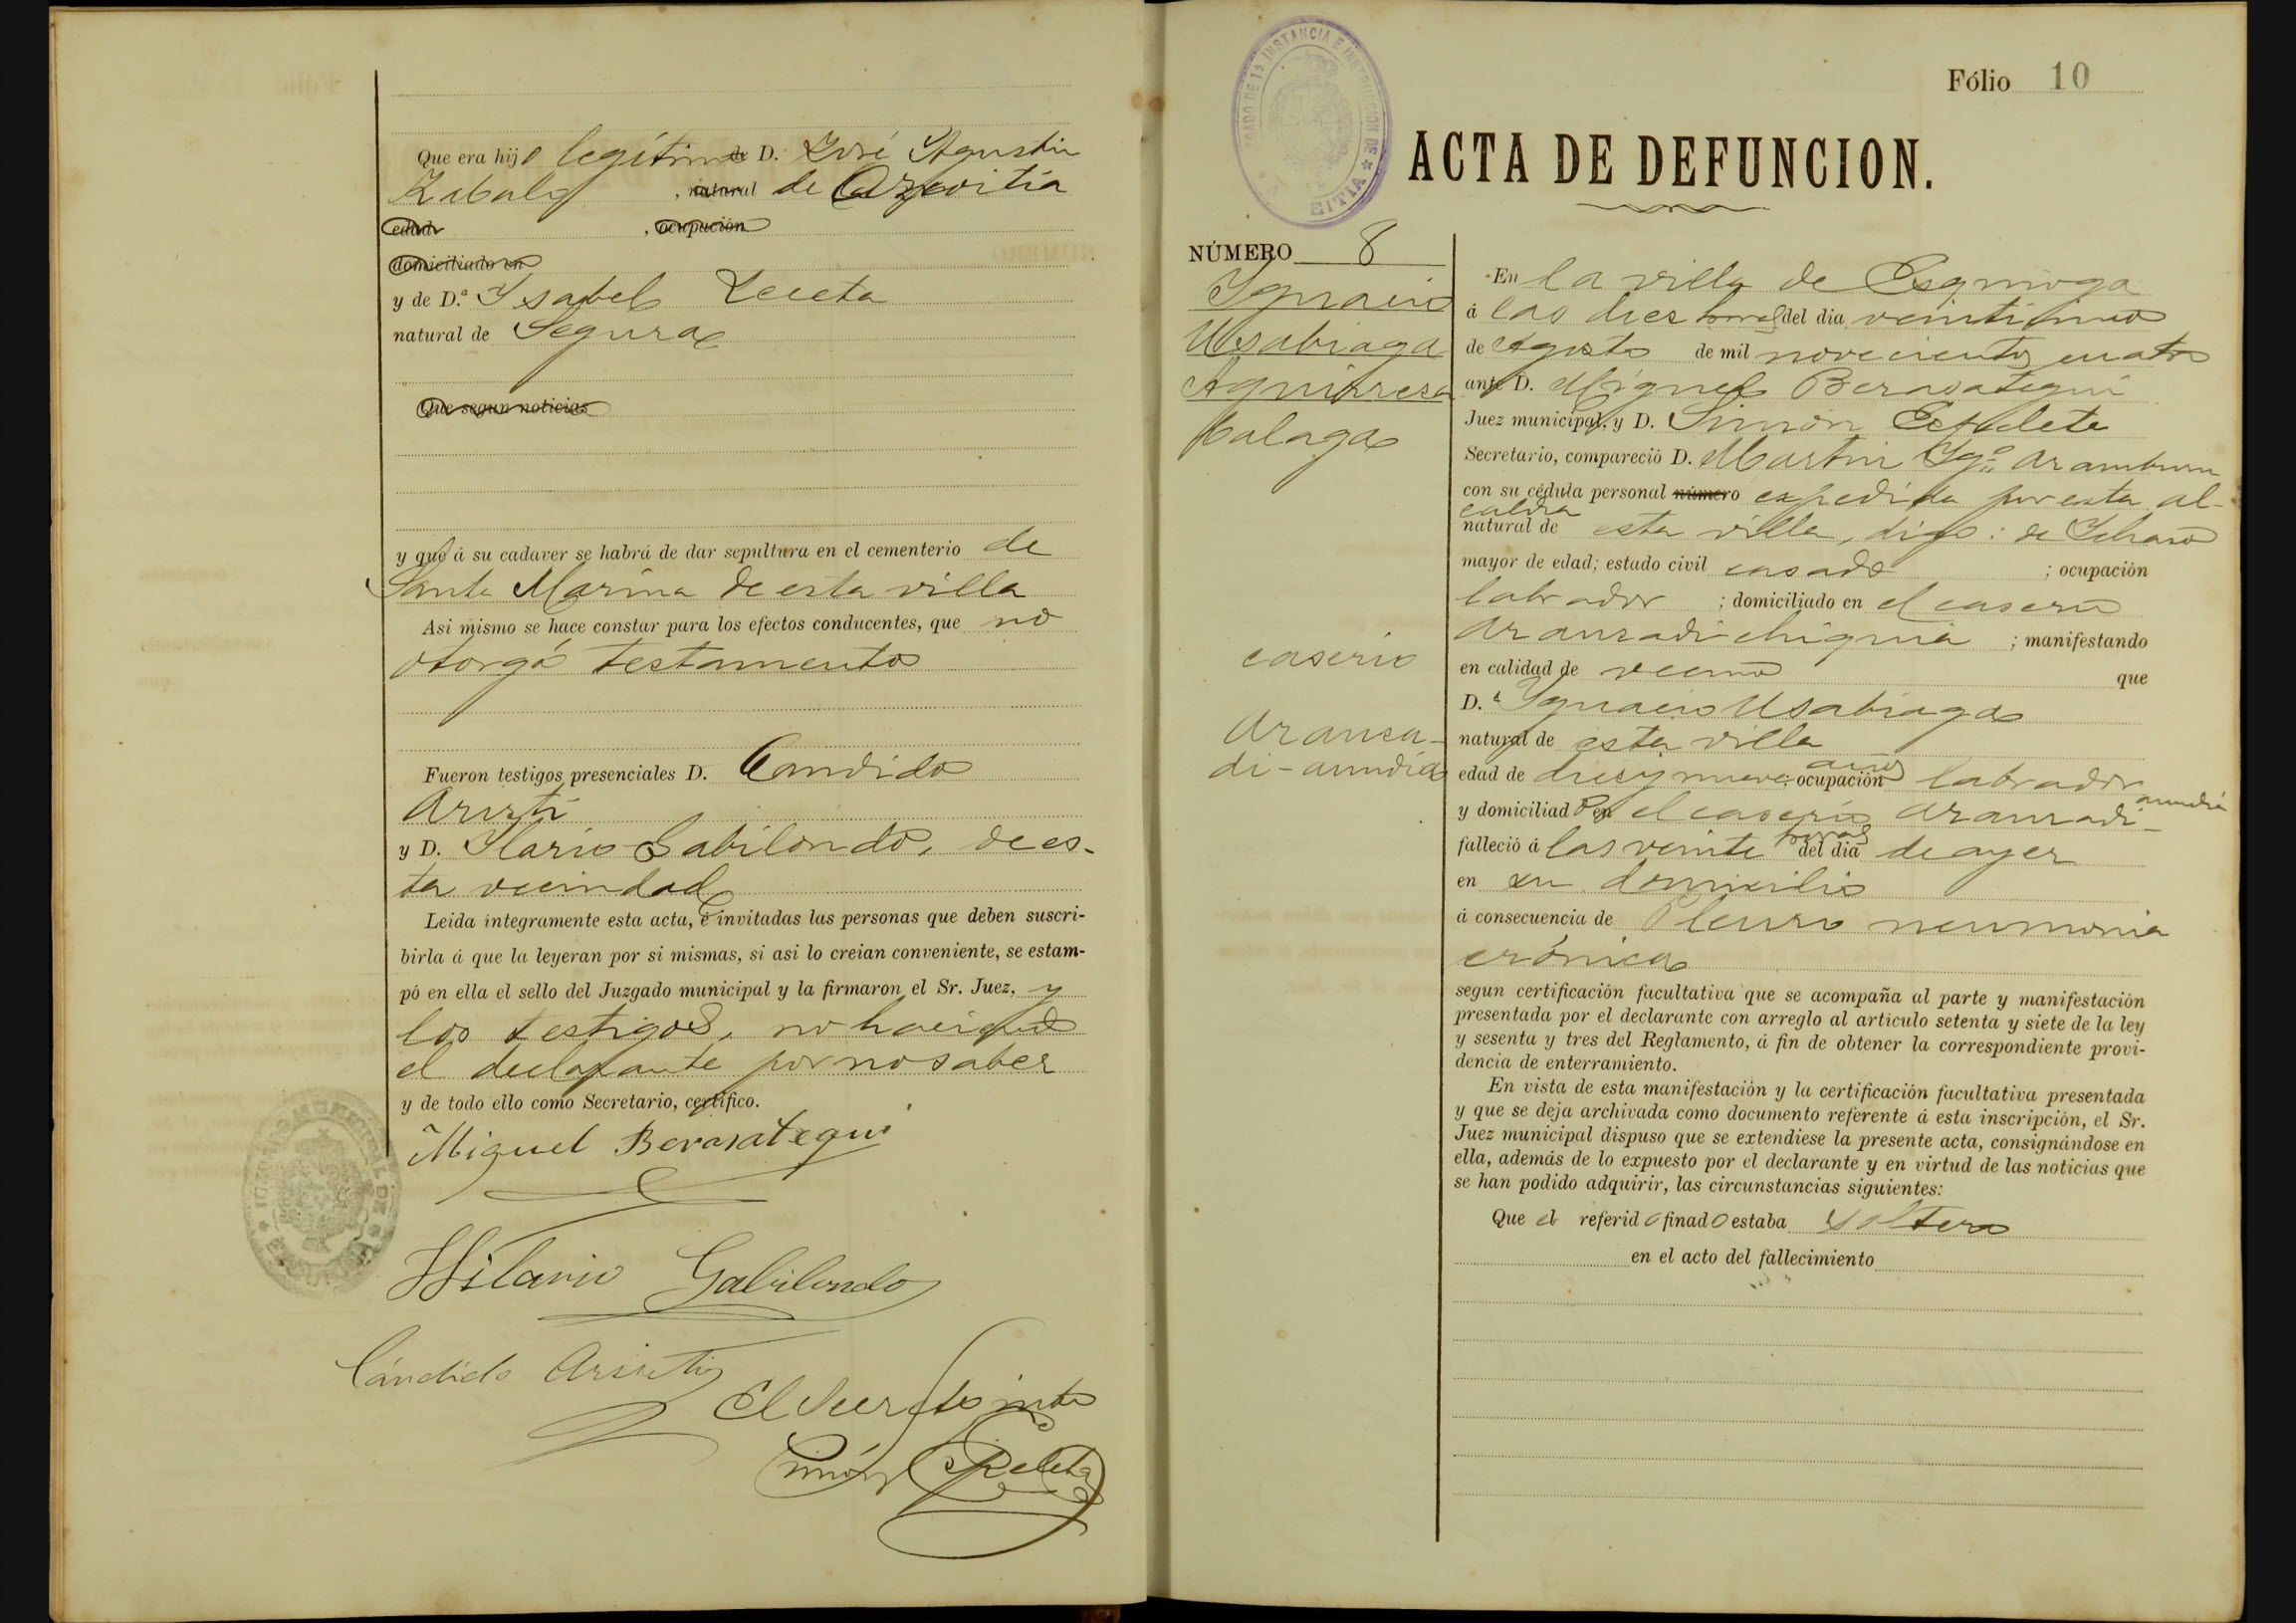 Que era hijo legítimo de D. José Agustin
Zabala, natural de Azcoitia
edad, ocupación
domiciliado en
y de D.ª Ysabel Leceta
natural de Segura
Que segun noticias
y que á su cadaver se habrá de dar sepultura en el cementerio de
Santa Marina de esta villa
Asi mismo se hace constar para los efectos conducentes, que no
otorgó testamento
Fueron testigos presenciales D. Candido
Aristi
y D. Ilario Gabilondo, de es-
ta vecindad
Leida íntegramente esta acta, é invitadas las personas que deben suscri-
birla á que la leyeran por si mismas, si asi lo creian conveniente, se estam-
pó en ella el sello del Juzgado municipal y la firmaron el Sr. Juez, y
los testigos, no haciendo
el declarante por no saber
y de todo ello como Secretario, certifico.
Miguel Berasategui
Hilario Gabilondo
Cándido Aristi
El Secreto
Simón Espeleta
Fólio 10
ACTA DE DEFUNCION.
NÚMERO 8
Ygnacio
Usabiaga
Aguirresa
balaga
caserio
Aranza-
di-aundia
En la villa de Ezquioga
á las diez horas del dia veintiuno
de Agosto de mil novecientos cuatro
ante D. Miguel Berasategui
Juez municipal, y D. Simón Espeleta
Secretario, compareció D. Martin Ygº Aramburu
con su cédula personal número expedida por esta al-
caldia
natural de esta villa, digo: de Ichaso
mayor de edad; estado civil casado; ocupación
labrador; domiciliado en el caserio
Aranzadi chiquia; manifestando
en calidad de vecino que
D. Ygnacio Usabiaga
natural de esta villa
edad de diez y nueve años, ocupación labrador
y domiciliado en el caserio Aranzadi-aundia
falleció á las veinte horas del dia de ayer
en su domicilio
á consecuencia de Pleuro neumonia
crónica
segun certificación facultativa que se acompaña al parte y manifestación
presentada por el declarante con arreglo al articulo setenta y siete de la ley
y sesenta y tres del Reglamento, á fin de obtener la correspondiente provi-
dencia de enterramiento.
En vista de esta manifestación y la certificación facultativa presentada
y que se deja archivada como documento referente á esta inscripción, el Sr.
Juez municipal dispuso que se extendiese la presente acta, consignándose en
ella, además de lo expuesto por el declarante y en virtud de las noticias que
se han podido adquirir, las circunstancias siguientes:
Que el referido finado estaba soltero
en el acto del fallecimiento